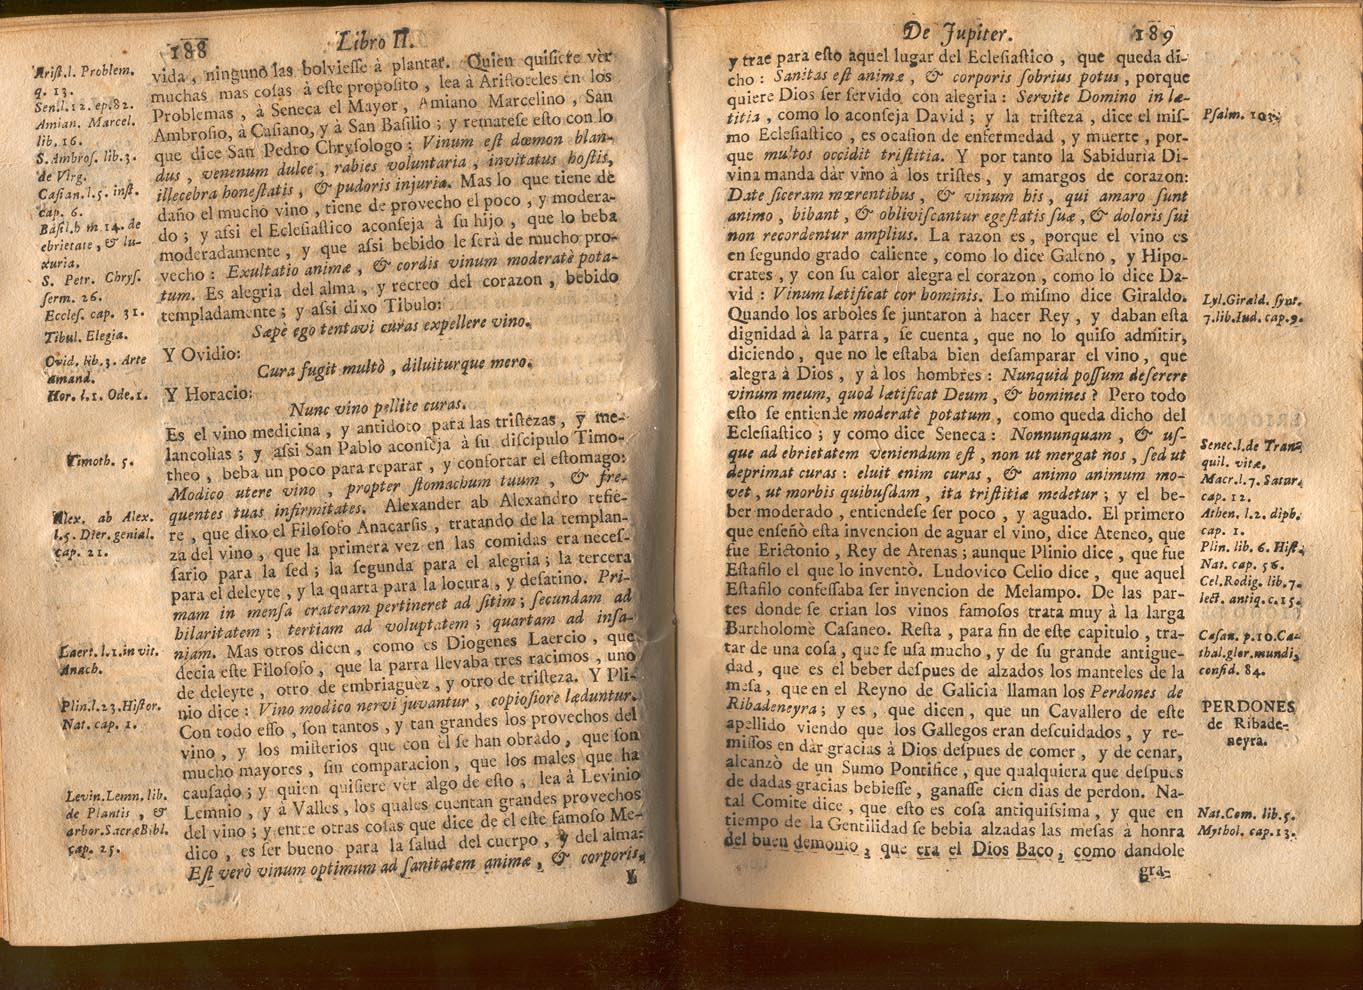 188
Libro II.
Arist.l. Problem.
q. 13.
Sen.l.12. ep.82.
Amian. Marcel.
lib. 16.
S. Ambros. lib.3.
de Virg.
Casian.l.5. inst.
cap. 6.
Basil.h m.14. de
ebrietate, & lu-
xuria.
S. Petr. Chrys.
serm. 26.
Eccles. cap. 31.
Tibul. Elegia.
Ovid. lib.3. Arte
amand.
Hor. l.1. Ode.1.
Timoth. 5.
Alex. ab Alex.
l.5. Dier. genial.
cap. 21.
Laert.l.1.in vit.
Anach.
Plin.l.23.Histor.
Nat. cap. 1.
Levin.Lemn. lib.
de Plantis, &
arbor.SacræBibl.
cap. 25.
vida, ninguno las bolviesse à plantar. Quien quisiere vèr
muchas mas cosas à este proposito, lea à Aristoteles en los
Problemas, à Seneca el Mayor, Amiano Marcelino, San
Ambrosio, à Casiano, y à San Basilio; y rematese esto con lo
que dice San Pedro Chrysologo: Vinum est dœmon blan-
dus, venenum dulce, rabies voluntaria, invitatus hostis,
illecebra honestatis, & pudoris injuria. Mas lo que tiene de
daño el mucho vino, tiene de provecho el poco, y modera-
do; y assi el Eclesiastico aconseja à su hijo, que lo beba
moderadamente, y que assi bebido le serà de mucho pro-
vecho: Exultatio animæ, & cordis vinum moderatè pota-
tum. Es alegria del alma, y recreo del corazon, bebido
templadamente; y assi dixo Tibulo:
Sæpè ego tentavi curas expellere vino.
Y Ovidio:
Cura fugit multò, diluiturque mero.
Y Horacio:
Nunc vino pellite curas.
Es el vino medicina, y antidoto para las tristezas, y me-
lancolias; y assi San Pablo aconseja à su discipulo Timo-
theo, beba un poco para reparar, y confortar el estomago:
Modico utere vino, propter stomachum tuum, & fre-
quentes tuas infirmitates. Alexander ab Alexandro refie-
re, que dixo el Filosofo Anacarsis, tratando de la templan-
za del vino, que la primera vez en las comidas era neces-
sario para la sed; la segunda para el alegria; la tercera
para el deleyte, y la quarta para la locura, y desatino. Pri-
mam in mensa crateram pertineret ad sitim; secundam ad
hilaritatem; tertiam ad voluptatem; quartam ad insa-
niam. Mas otros dicen, como es Diogenes Laercio, que
decia este Filosofo, que la parra llevaba tres racimos, uno
de deleyte, otro de embriaguez, y otro de tristeza. Y Pli-
nio dice: Vino modico nervi juvantur, copiosiore læduntur.
Con todo esso, son tantos, y tan grandes los provechos del
vino, y los misterios que con èl se han obrado, que son
mucho mayores, sin comparacion, que los males que ha
causado; y quien quisiere vèr algo de esto, lea à Levinio
Lemnio, y à Valles, los quales cuentan grandes provechos
del vino; y entre otras cosas que dice de èl este famoso Me-
dico, es ser bueno para la salud del cuerpo, y del alma:
Est verò vinum optimum ad sanitatem animæ, & corporis.
Y
De Jupiter.
189
y trae para esto aquel lugar del Eclesiastico, que queda di-
cho: Sanitas est animæ, & corporis sobrius potus, porque
quiere Dios ser servido con alegria: Servite Domino in læ-
titia, como lo aconseja David; y la tristeza, dice el mis-
mo Eclesiastico, es ocasion de enfermedad, y muerte, por-
que multos occidit tristitia. Y por tanto la Sabiduria Di-
vina manda dàr vino à los tristes, y amargos de corazon:
Date siceram mœrentibus, & vinum his, qui amaro sunt
animo, bibant, & obliviscantur egestatis suæ, & doloris sui
non recordentur amplius. La razon es, porque el vino es
en segundo grado caliente, como lo dice Galeno, y Hipo-
crates, y con su calor alegra el corazon, como lo dice Da-
vid: Vinum lætificat cor hominis. Lo mismo dice Giraldo.
Quando los arboles se juntaron à hacer Rey, y daban esta
dignidad à la parra, se cuenta, que no lo quiso admitir,
diciendo, que no le estaba bien desamparar el vino, que
alegra à Dios, y à los hombres: Nunquid possum deserere
vinum meum, quod lætificat Deum, & homines? Pero todo
esto se entiende moderatè potatum, como queda dicho del
Eclesiastico; y como dice Seneca: Nonnunquam, & us-
que ad ebrietatem veniendum est, non ut mergat nos, sed ut
deprimat curas: eluit enim curas, & animo animum mo-
vet, ut morbis quibusdam, ita tristitiæ medetur; y el be-
ber moderado, entiendese ser poco, y aguado. El primero
que enseñò esta invencion de aguar el vino, dice Ateneo, que
fue Erictonio, Rey de Atenas; aunque Plinio dice, que fue
Estafilo el que lo inventò. Ludovico Celio dice, que aquel
Estafilo confessaba ser invencion de Melampo. De las par-
tes donde se crian los vinos famosos trata muy à la larga
Bartholomè Casaneo. Resta, para fin de este capitulo, tra-
tar de una cosa, que se usa mucho, y de su grande antigue-
dad, que es el beber despues de alzados los manteles de la
mesa, que en el Reyno de Galicia llaman los Perdones de
Ribadeneyra; y es, que dicen, que un Cavallero de este
apellido viendo que los Gallegos eran descuidados, y re-
missos en dàr gracias à Dios despues de comer, y de cenar,
alcanzò de un Sumo Pontifice, que qualquiera que despues
de dadas gracias bebiesse, ganasse cien dias de perdon. Na-
tal Comite dice, que esto es cosa antiquissima, y que en
tiempo de la Gentilidad se bebia alzadas las mesas à honra
del buen demonio, que era el Dios Baco, como dandole
gra-
Psalm. 103.
Lyl.Girald. synt.
7.lib.Iud. cap.9.
Senec.l.de Tran-
quil. vitæ.
Macr.l.7. Satur.
cap. 12.
Athen. l.2. diph.
cap. 1.
Plin. lib. 6. Hist.
Nat. cap. 56.
Cel.Rodig. lib.7.
lect. antiq.c.15.
Casan. p.10.Ca-
thal.glor.mundi,
consid. 84.
PERDONES
de Ribade-
neyra.
Nat.Com. lib.5.
Mythol. cap.13.